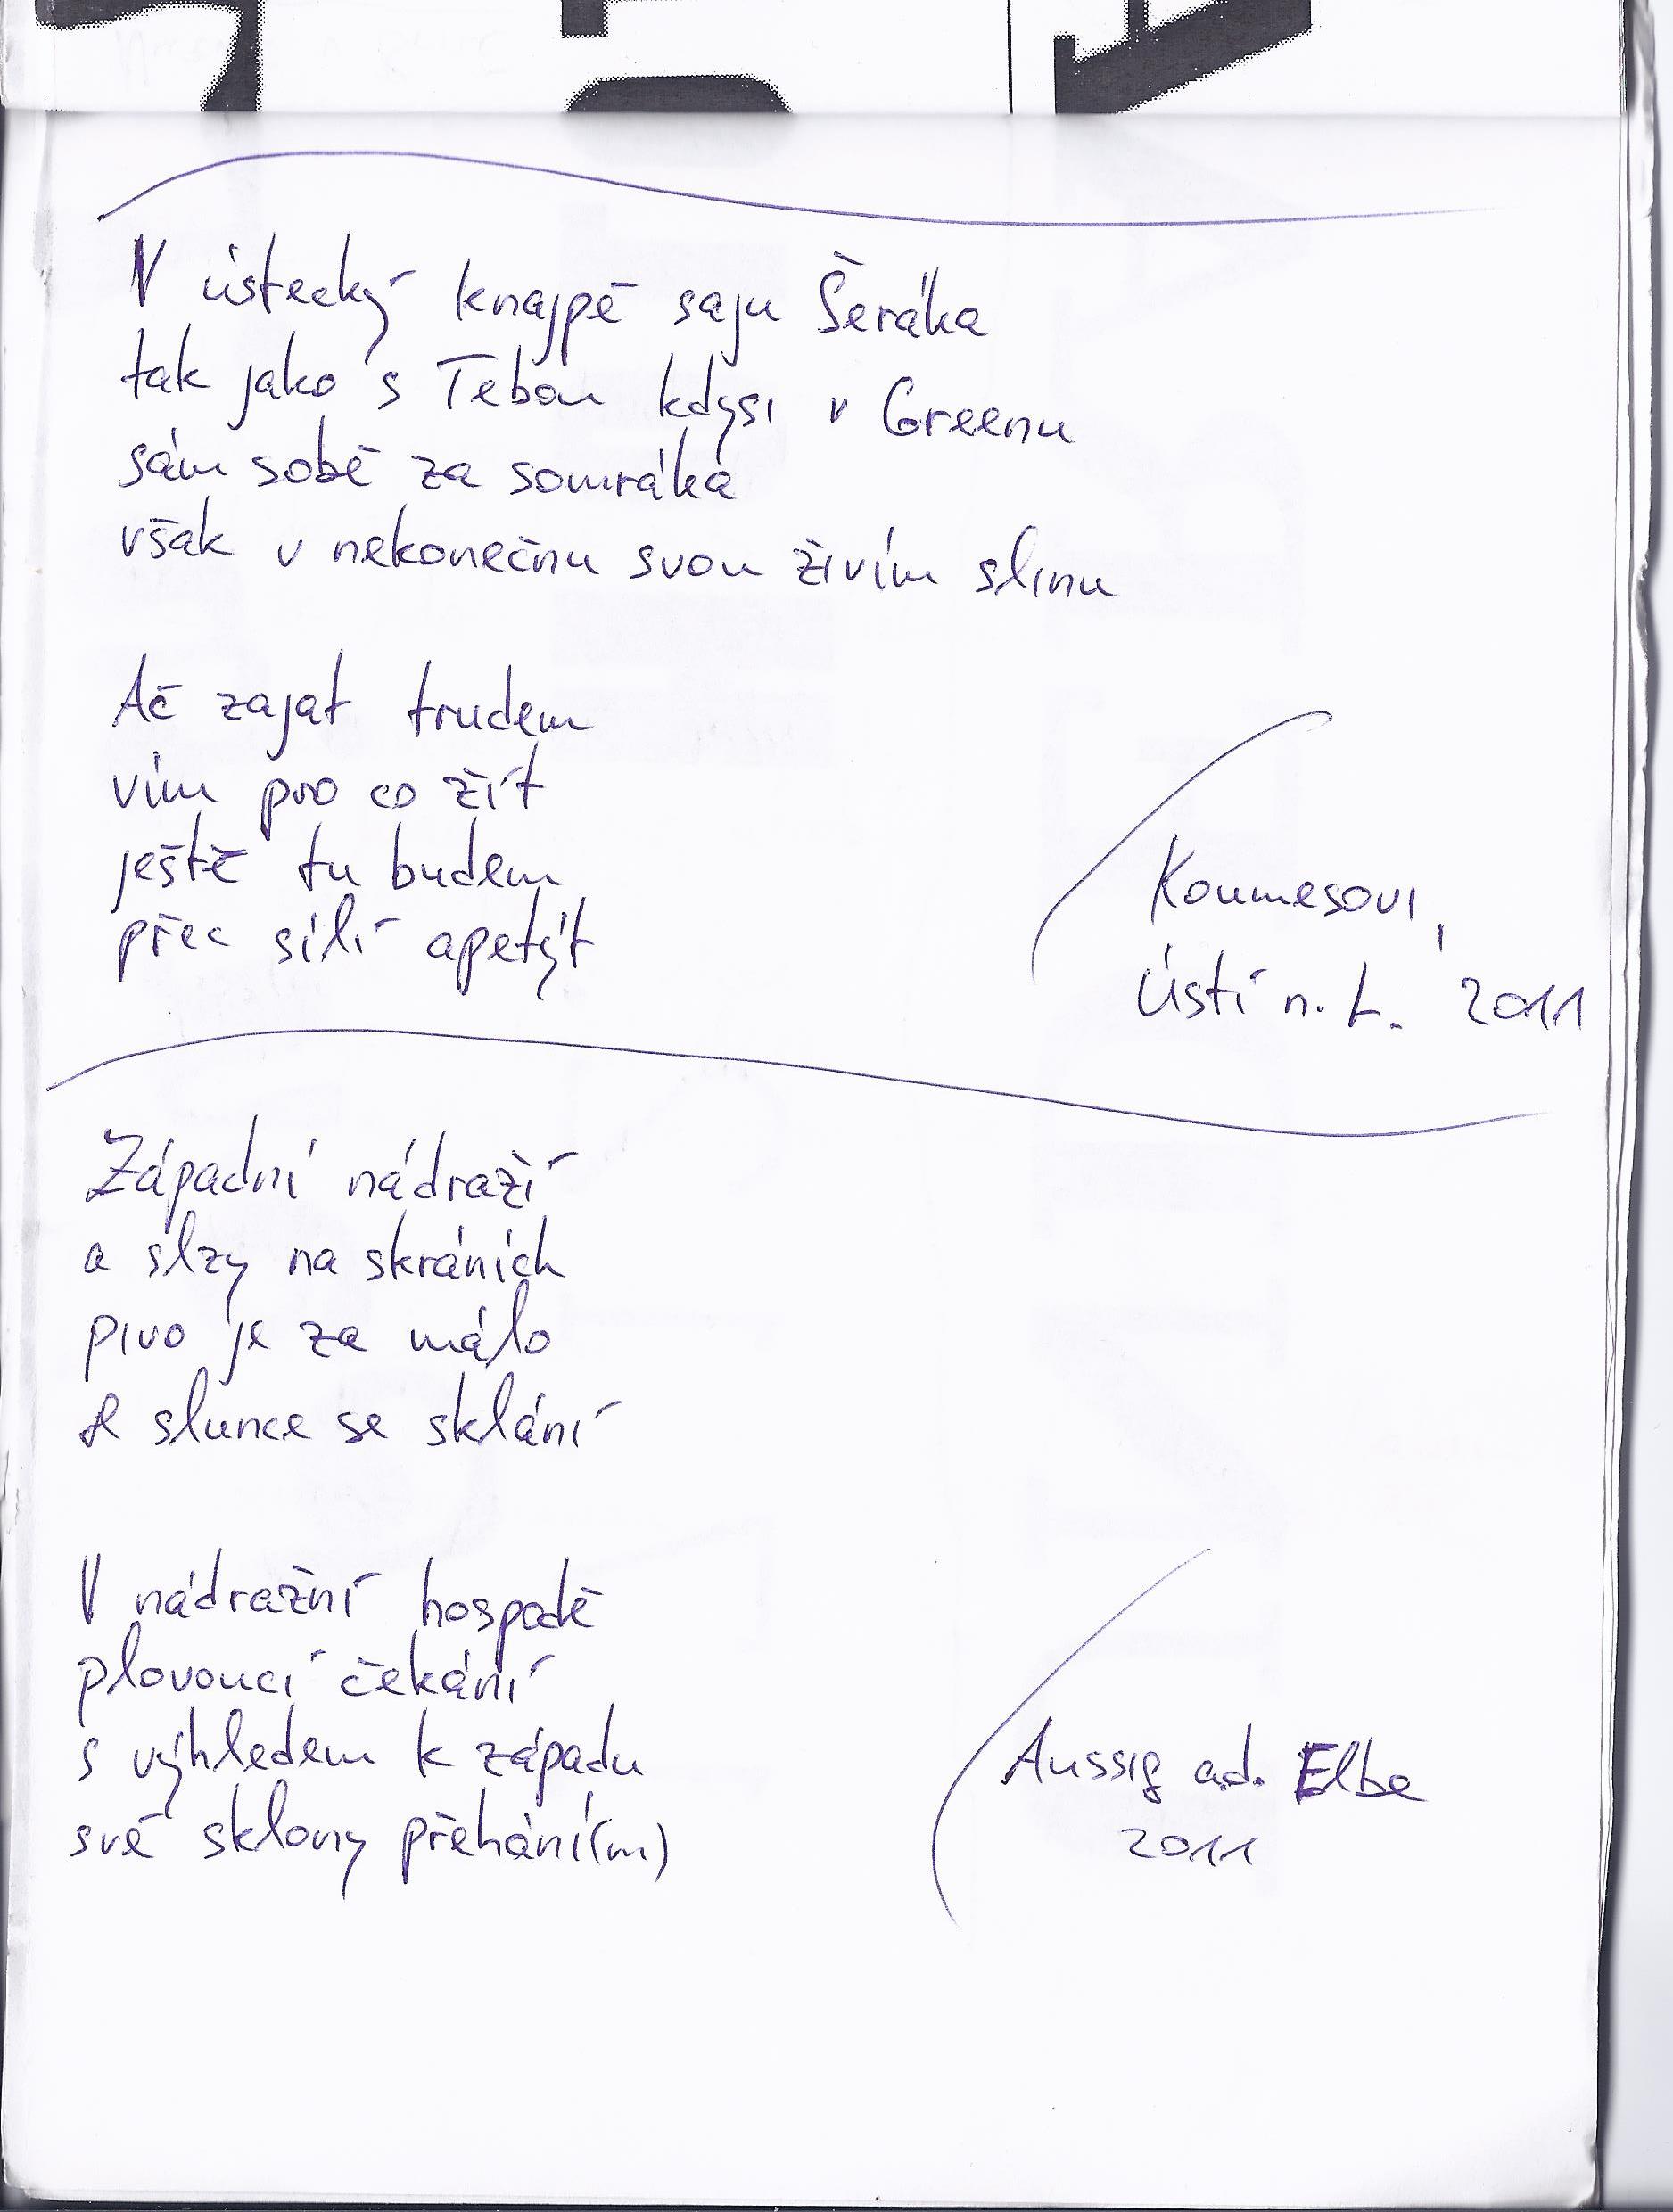 V ústecký knajpě saju Šeráka
tak jako s Tebou kdysi v Greenu
sám sobě za somráka
však v nekonečnu svou živím slinu
Ač zajat trudem
vím pro co žít
ještě tu budem
přec sílí apetýt
Koumesovi,
Ústí n. L. 2011
Západní nádraží
a slzy na skráních
pivo je za málo
A slunce se sklání
V nádražní hospodě
plovoucí čekání
s výhledem k západu
své sklony přehání(m)
Aussig a.d. Elbe
2011